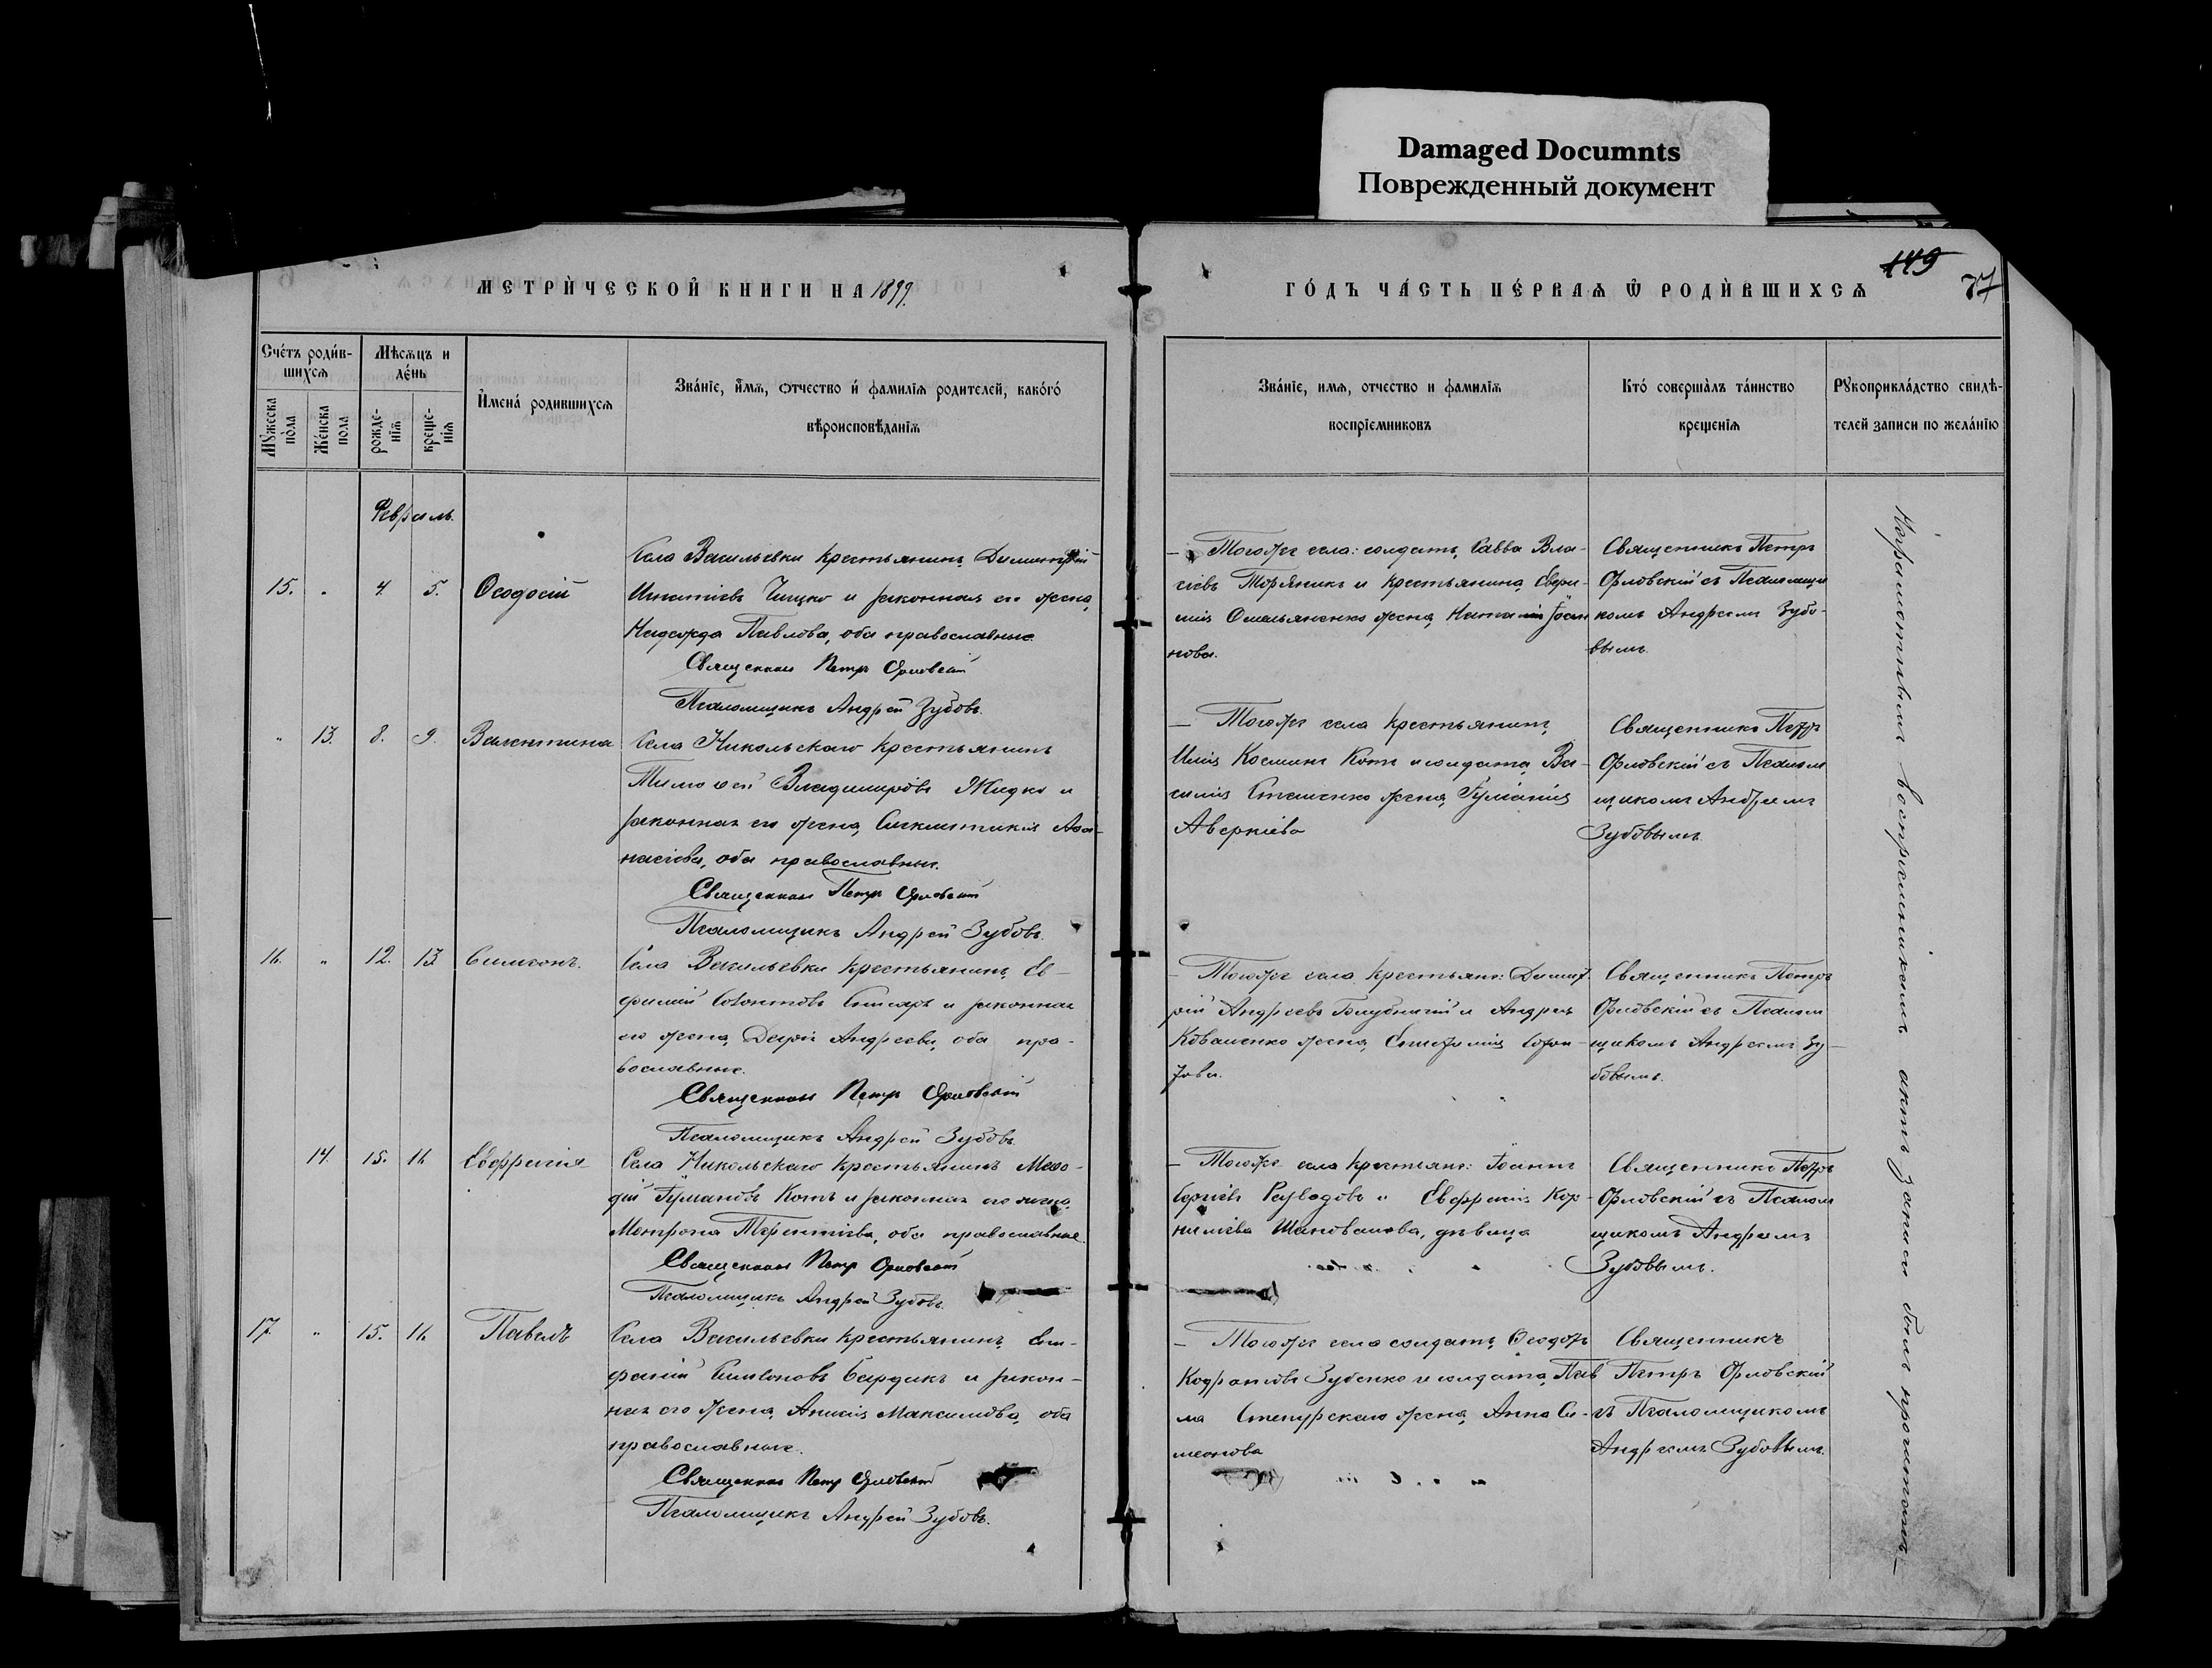 Damaged Documnts
Поврежденный документ
149
77
МЕТРИ́ЧЕСКОЙ КНИГИ НА 1899.
ГО́ДЪ ЧА́СТЬ ПЕ́РВАѦ Ѿ РОДИ́ВШИХСѦ
Сче́тъ роди́в-
шихсѧ
Мѣсѧцъ и
де́нь
Мꙋжеска
по́ла
Же́нска
пола
рожде-
нїѧ
креще-
нїѧ
И҆мена́ родившихсѧ
Зва́нїе, и҆́мѧ, отчество и҆ фамилїѧ родителей, како́го́
вѣроисповѣданїѧ
Зва́нїе, имѧ, отчество и фамилїѧ
воспрїемниковъ
Кто́ соверша́лъ та́инство
крещенїѧ
Рꙋкоприкла́дство свидѣ-
телей записи по жела́нїю
Февраль.
15. „ 4. 5. Ѳеодосій
Села Васильевки крестьянинъ Димитрій
Игнатіевъ и законная его жена,
Надежда Павлова, оба православные.
Священникъ Петръ Орловскій
Псаломщикъ Андрей Зубовъ.
— Того же села: солдатъ, Савва Вла-
сіевъ и крестьянина,
Омельяненко жена, Наталія Іоан
нова.
Священникъ Петръ
Орловскій съ Псаломщи
комъ Андреемъ Зубо-
вымъ.
„ 13. 8. 9. Валентина
Села Никольскаго крестьянинъ
Тимоѳей Владимировъ Жидко и
законная его жена, Синклитикія Аѳа-
насіева, оба православные.
Священникъ Петръ Орловскій
Псаломщикъ Андрей Зубовъ.
— Того же села крестьянинъ,
Илія Косминъ Котъ и солдата, Ва-
силія Стешенко жена, Іуліанія
Аверкіева
Священникъ Петръ
Орловскій съ Псалом
щикомъ Андреемъ
Зубовымъ.
16. „ 12. 13 Симеонъ.
Села Васильевки крестьянинъ, Ев-
фимій и законная
его жена, Дарія Андреева, оба пра-
вославные.
Священникъ Петръ Орловскій
Псаломщикъ Андрей Зубовъ.
— Того же села крестьяне: Димит
рій Андреевъ Голубничій и Андрея
Коваленко жена,
Священникъ Петръ
Орловскій съ Псалом
щикомъ Андреемъ Зу-
бовымъ.
14. 15. 16 Евфрасія
Села Никольскаго крестьянинъ Меѳо-
дій Котъ и законная его жена,
Матрона Терентіева, оба православные.
Священникъ Петръ Орловскій
Псаломщикъ Андрей Зубовъ.
— Того же села крестьяне: Іоаннъ
Сергіевъ и Евфрасія Кор-
ниліева Шаповалова, дѣвица
Священникъ Петръ
Орловскій съ Псалом
щикомъ Андреемъ
Зубовымъ.
17. „ 15. 16 Павелъ
Села Васильевки крестьянинъ, Епи-
фаній Симеоновъ и закон-
ная его жена, Максимова, оба
православные.
Священникъ Петръ Орловскій
Псаломщикъ Андрей Зубовъ.
— Того же села солдатъ, Ѳеодоръ
Кодратовъ Зубенко и солдата, Пав
ла жена, Анна Си-
меонова
Священникъ
Петръ Орловскій
съ Псаломщикомъ
Андреемъ Зубовымъ.
Неграмотнымъ воспріемникамъ актъ записи былъ прочитанъ.—